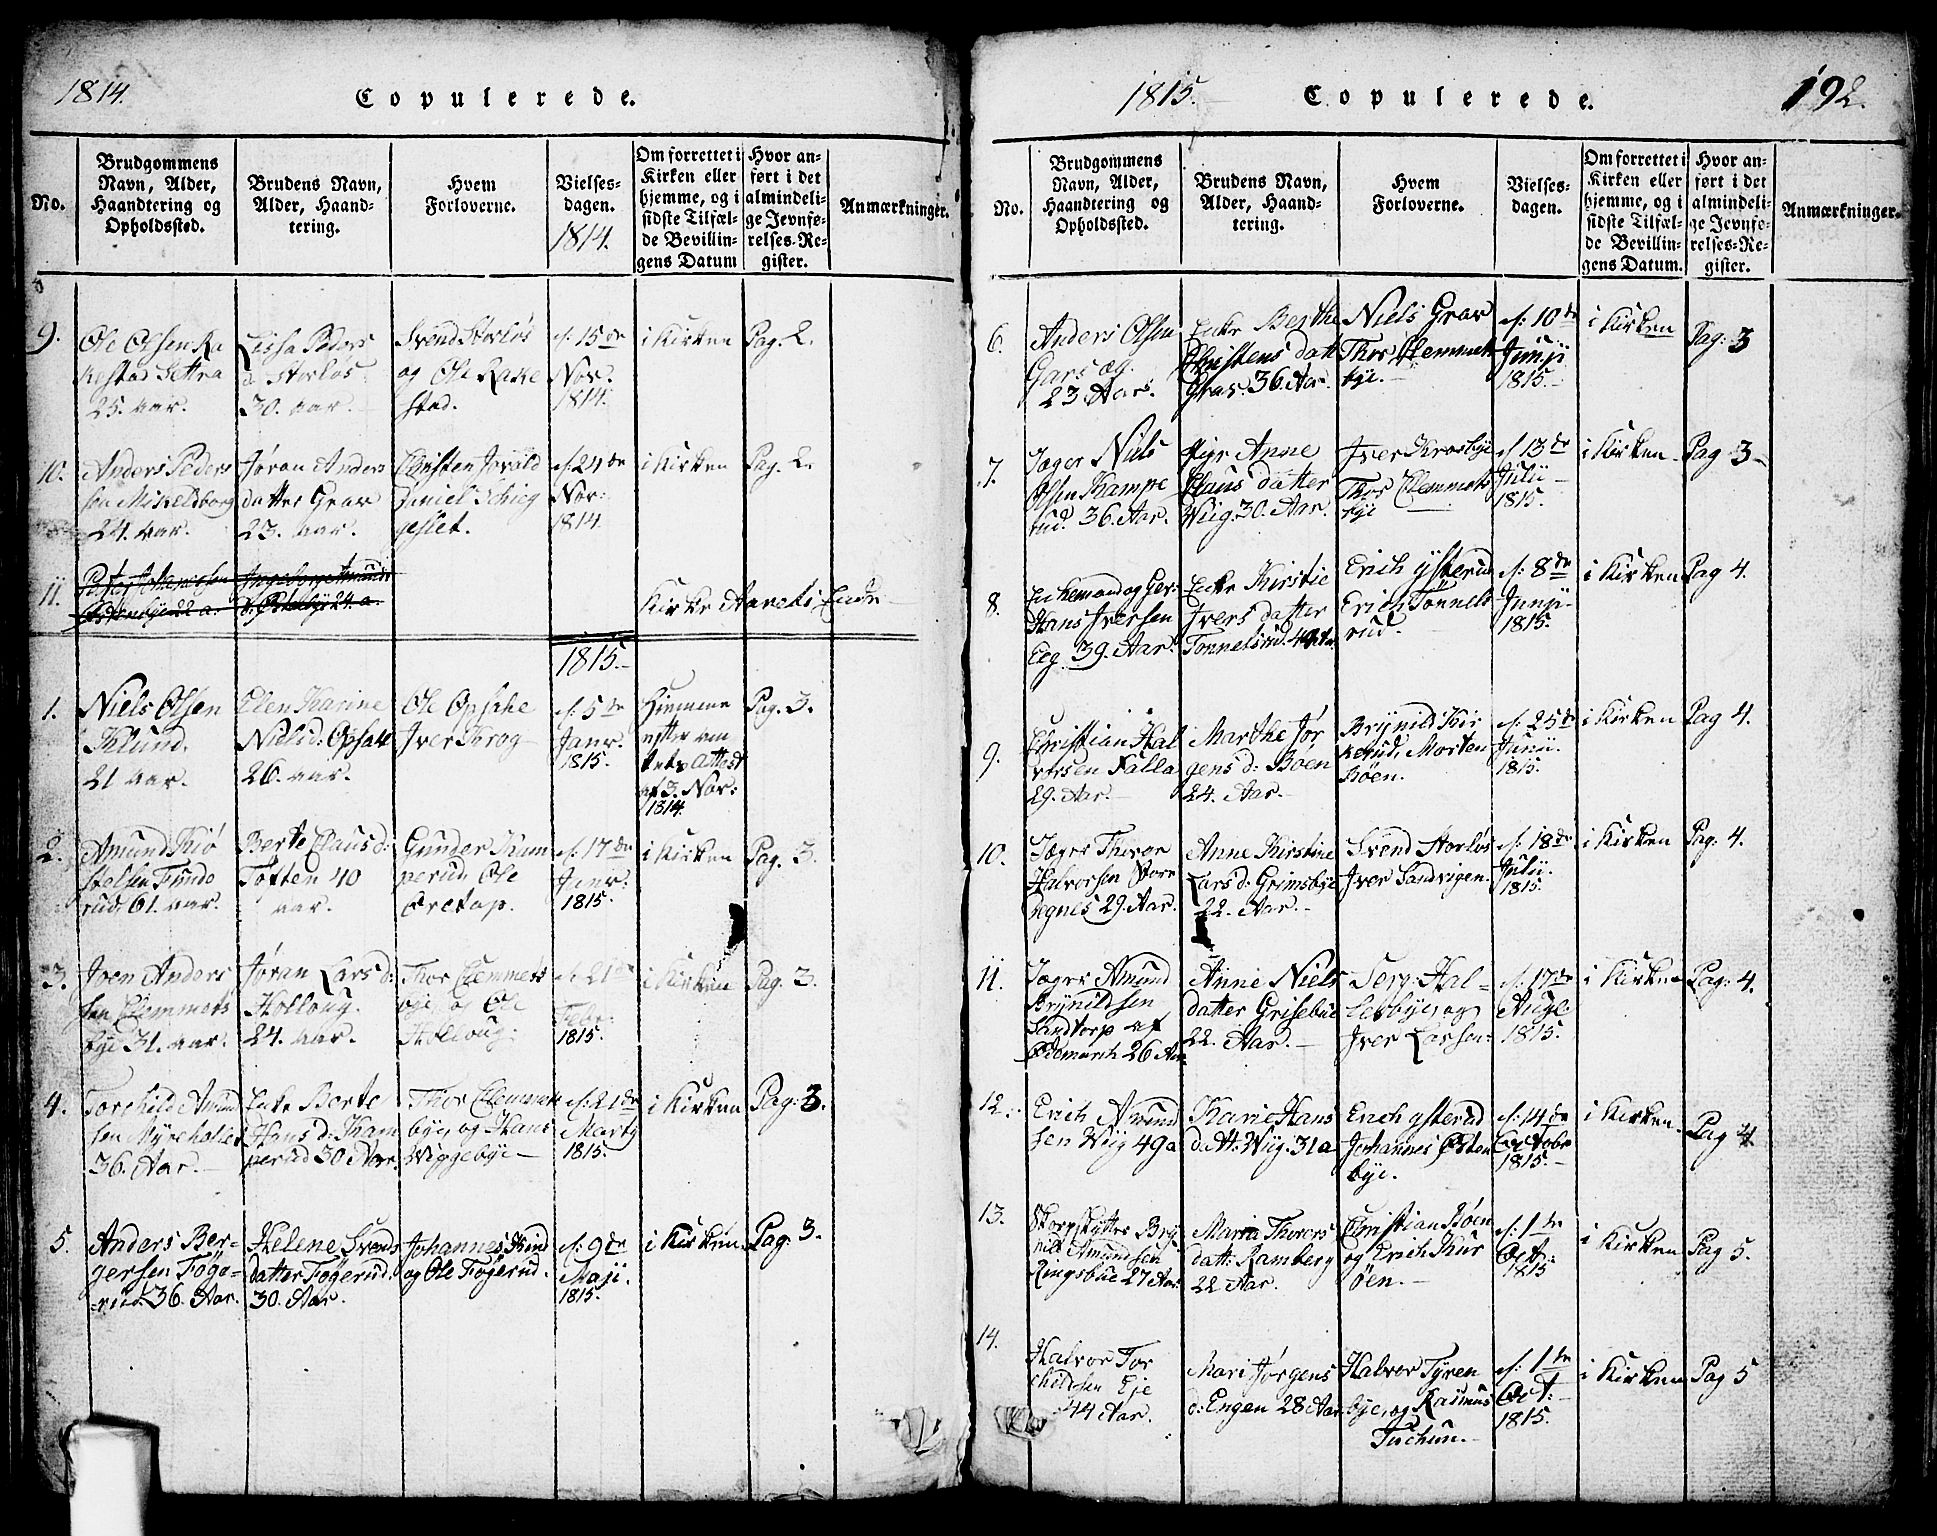 1814.
Copulerede.
No.
Brudgommens
Navn, Alder,
Haandtering og
Opholdssted.
Brudens Navn,
Alder, Haand-
tering.
Hvem
Forloverne.
Vielses-
dagen.
1814.
Om forrettet i
Kirken eller
hjemme, og i
sidste Tilfæl-
de Bevillin-
gens Datum
Hvor an-
ført i det
almindeli-
ge Jevnfø-
relses-Re-
gister.
Anmærkninger.
9.
Ole Olsen Ra
kestad Settra
25. aar.
Lissa Peders
d. Storløs
30. aar.
Svend Storløs
og Ole Rake
stad.
d. 15de
Nov.
1814.
i Kirken
Pag. 2.
10.
Anders Peders
sen Mikelsborg
24. aar.
Jøran Anders
datter Grav
23. aar.
Christen
Daniel
d. 24de
Nov:
1814.
i Kirken
Pag. 2.
11.
Kirke Aarets Ende
1815.
1.
Niels Olsen
Klund.
21 aar.
Elen Karine
Nielsd: Opsahl
26. aar.
Ole Opsahe
Iver Krog
d. 5de
Janv.
1815.
Hiemme
efter am
tets Attest
af 3. Nov:
1814.
Pag. 3.
2.
Amund Kiø
stelsen Trude
rud, 61. aar.
Berte Clausd:
Toften 40
aar.
Gunder Kam
perud, Ole
Øretop.
d. 17de
Janv:
1815.
i Kirken
Pag. 3.
3.
Joen Anders
sen Clemmets
bye 31. aar.
Jøran Larsd:
Holloug.
24. aar.
Thor Clemmets
bye, og Ole
Holloug.
d. 21de
Febr:
1815.
i Kirken
Pag. 3.
4.
Torchild Amund
sen Myrehallet
36. Aar.
Enke Berte
Hansd: Kam
perud 30 Aar.
Thor Clemmets
bye, og Hans
Wiggebye
d. 21de
Marty
1815.
i Kirken
Pag: 3.
5.
Anders Ber-
gersen Føge-
rud. 36. Aar.
Helene Svends
datter Føgerud.
30. Aar.
Johannes Kind
og Ole Føgerud.
d. 9de
Maji.
1815.
i Kirken
Pag. 3.
1815.
Copulerede.
192.
No.
Brudgommens
Navn, Alder,
Haandtering og
Opholdssted.
Brudens Navn,
Alder, Haand-
tering.
Hvem
Forloverne.
Vielses-
dagen.
Om forrettet i
Kirken eller
hjemme, og i
sidste Tilfæl-
de Bevillin-
gens Datum.
Hvor an-
ført i det
almindeli-
ge Jevnfø-
relses-Re-
gister.
Anmærkninger.
6.
Anders Olsen
23 Aar.
Enke Berthe
Christens datt
Grav. 36. Aar.
Niels Grav
Thor Clemmets
bye.
d: 10de
Junji
1815.
i Kirken
Pag: 3
7.
Jæger Niels
Olsen Kampe
rud. 36. Aar.
Pige Anne
Claus datter
Wiig. 30. Aar.
Iver Krosbye
Thor Clemmets
bye
d 13de
Julii
1815.
i Kirken
Pag 3
8.
Enkemand og Ger:
Hans Iversen
Eeg. 39. Aar.
Enke Kirstie
Ivers datter
Tonnelsrud.
Erich Ysterud
Erich Tonnels
rud.
d. 8de
Junji
1815.
i Kirken
Pag 4.
9.
Christian Hal
vorsen Falla
29. Aar.
Marthe Jør
gens d: Böen
24. Aar.
Brynild Kir
kerud, Morten
Böen.
d. 25de
Junii.
1815.
i Kirken
Pag 4.
10.
Jæger Thorer
Halvorsen Store
29. Aar.
Anne Kirstine
Lars d: Grimsbye
22. Aar.
Svend Storløs
Iver Sandvigen.
d. 18de
Julii.
1815.
i Kirken
Pag: 4.
11.
Jæger Amund
Brynildsen
Sandtorp af
Ødemarch 26 Aar
Anne Niels
datter Grisebue
22. Aar.
Serg: Hal-
lesbye, og
Iver Larsen:
d. 17de
Augl:
1815.
i Kirken
Pag: 4.
12.
Erich Amund
sen Wiig 49a
Karie Hans
datt: Wiig. 31a
Erich Ysterud
Johannes Østen
bye.
d. 14de
Octobr
1815.
i Kirken.
Pag 4
13.
Skarpskytter Bry
nild Amundsen
Ringsbue 27 Aar.
Maria Thorers
datt: Ramberg
22 Aar.
Christian Böen
og Erich Kur
öen.
d. 1de
Oct.
1815
i Kirken
Pag 5.
14.
Halvor Tor
childsen Eje
44 Aar.
Mari Jørgens
d: Engen 28 Aar
Halvor Tyren
bye, og Rasmus
Tuchun.
d. 1de
Oct:
1815.
i Kirken
Pag 5